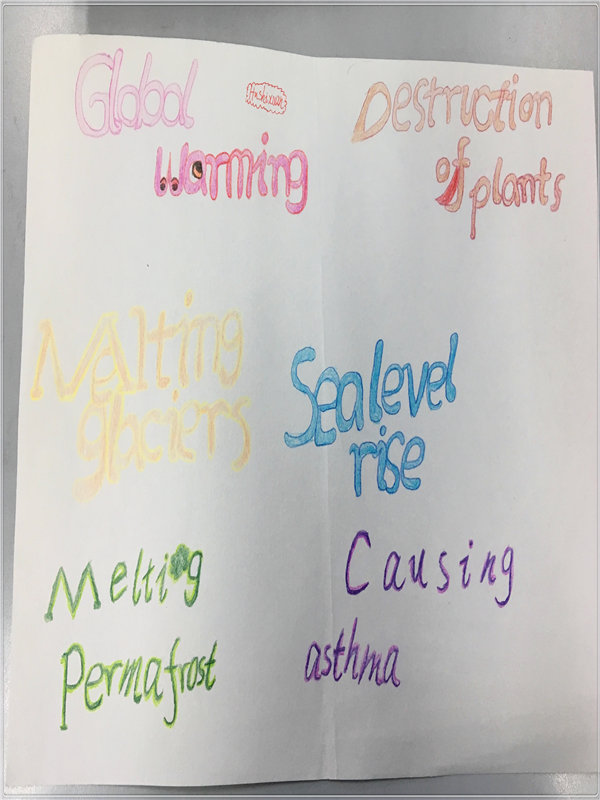 Global
warming
Destruction
of plants
Melting
glaciers
Sea level
rise
Melting
Permafrost
Causing
asthma